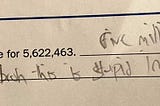 e for 5,622,463. five mill
this is stupid